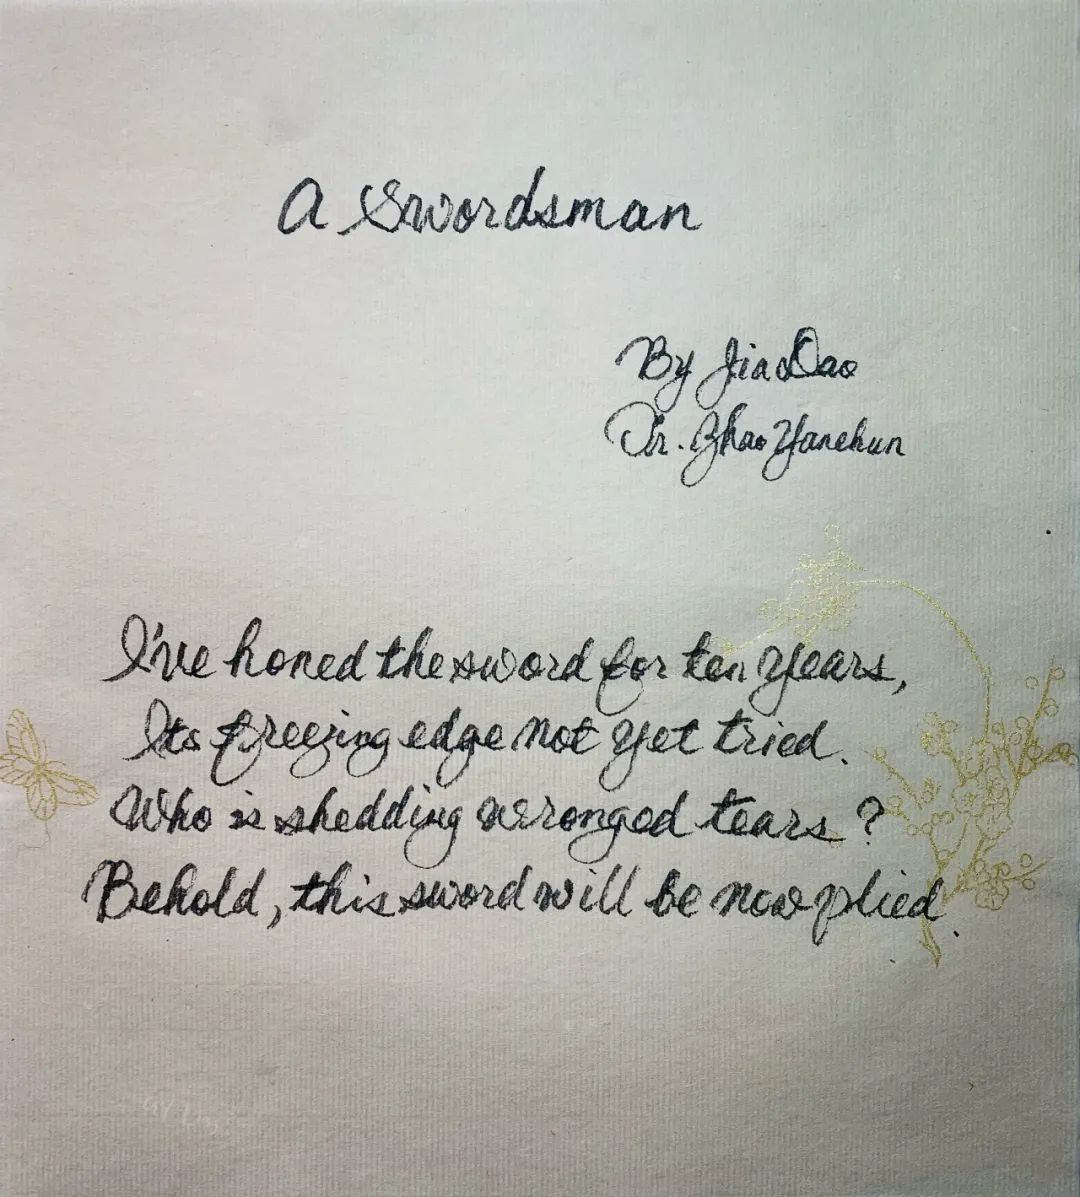 A Swordsman
By Jia Dao
Tr. Zhao Yanchun
I've honed the sword for ten years,
Its freezing edge not yet tried.
Who is shedding wronged tears?
Behold, this sword will be now plied.